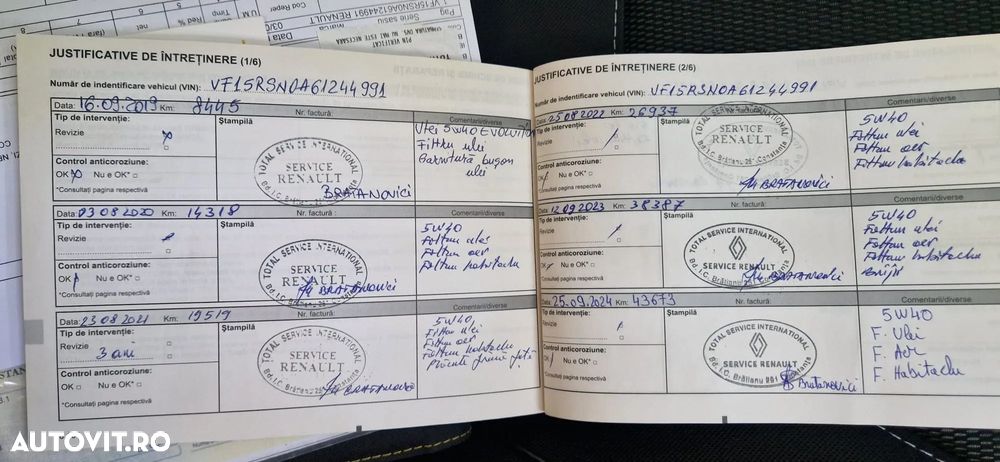 JUSTIFICATIVE DE ÎNTREȚINERE (1/6)
Număr de indentificare vehicul (VIN): VF15RSN0A61244991
Data: 16.09.2019 Km: 8445 Nr. factură: Comentarii/diverse
Tip de intervenție:
Revizie
Ștampilă
TOTAL SERVICE INTERNATIONAL
SERVICE
RENAULT
Bd. I.C. Brătianu Constanța
BRATANOVICI
Ulei 5W40 EVOLUTION
Filtru ulei
Garnitură bușon
ulei
Control anticoroziune:
OK Nu e OK*
*Consultați pagina respectivă
Data: 03 08 2020 Km: 14318 Nr. factură: Comentarii/diverse
Tip de intervenție:
Revizie
Ștampilă
TOTAL SERVICE INTERNATIONAL
SERVICE
RENAULT
BRATANOVICI
5W40
Filtru ulei
Filtru aer
Filtru habitaclu
Control anticoroziune:
OK Nu e OK*
*Consultați pagina respectivă
Data: 23 08 2021 Km: 19519 Nr. factură: Comentarii/diverse
Tip de intervenție:
Revizie
3 ani
Ștampilă
TOTAL SERVICE INTERNATIONAL
SERVICE
RENAULT
BRATANOVICI
5W40,
Filtru ulei
Filtru aer
Filtru habitaclu
Plăcuțe frână față
Control anticoroziune:
OK Nu e OK*
*Consultați pagina respectivă
JUSTIFICATIVE DE ÎNTREȚINERE (2/6)
Număr de indentificare vehicul (VIN): VF15RSN0A61244991
Data: 25.08.2022 Km: 26937 Nr. factură: Comentarii/diverse
Tip de intervenție:
Revizie
Ștampilă
TOTAL SERVICE INTERNATIONAL
SERVICE
RENAULT
Bd. I.C. Brătianu Constanța
BRATANOVICI
5W40
Filtru ulei
Filtru aer
Filtru habitaclu
Control anticoroziune:
OK Nu e OK*
*Consultați pagina respectivă
Data: 12.09.2023 Km: 38387 Nr. factură: Comentarii/diverse
Tip de intervenție:
Revizie
Ștampilă
TOTAL SERVICE INTERNATIONAL
SERVICE RENAULT
BRATANOVICI
5W40
Filtru ulei
Filtru aer
Filtru habitaclu
Control anticoroziune:
OK Nu e OK*
*Consultați pagina respectivă
Data: 25.09.2024 Km: 43673 Nr. factură: Comentarii/diverse
Tip de intervenție:
Revizie
Ștampilă
TOTAL SERVICE INTERNATIONAL
SERVICE RENAULT
Bd. I.C. Brătianu Constanța
Bratanovici
5W40
F. Ulei
F. Aer
F. Habitaclu
Control anticoroziune:
OK Nu e OK*
*Consultați pagina respectivă
AUTOVIT.RO